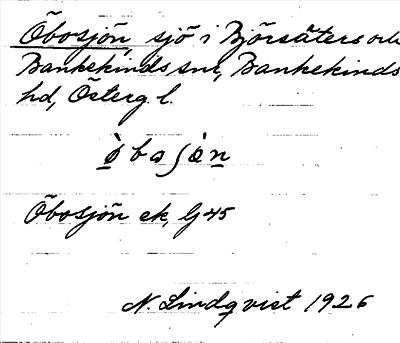 Öbosjön, sjö i Björsäters och
Bankekinds snr, Bankekinds
hd, Österg. l.
Öbosjön ek.
N Lindqvist 1926